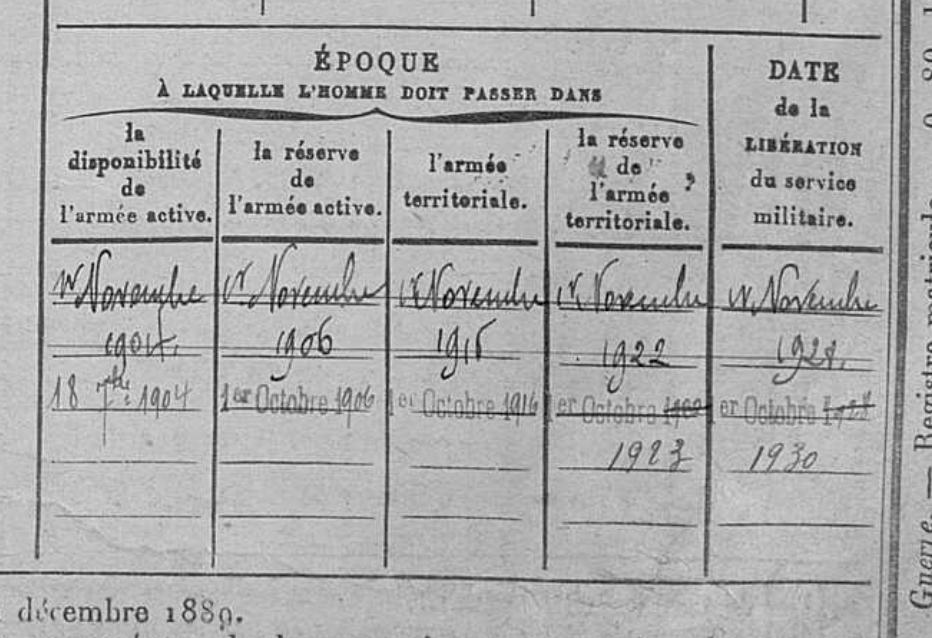 ÉPOQUE
À LAQUELLE L'HOMME DOIT PASSER DANS
la
disponibilité
de
l'armée active.
la réserve
de
l'armée active.
l'armée
territoriale.
la réserve
de
l'armée
territoriale.
DATE
de la
LIBÉRATION
du service
militaire.
Novembre Novembre Novembre Novembre Novembre
1904. 1906 1916 1922 1928.
18 7bre 1904 1er Octobre 1906 1er Octobre 1916 1er Octobre er Octobre
1923 1930
décembre 1889.
Guerre. — Registre matricule